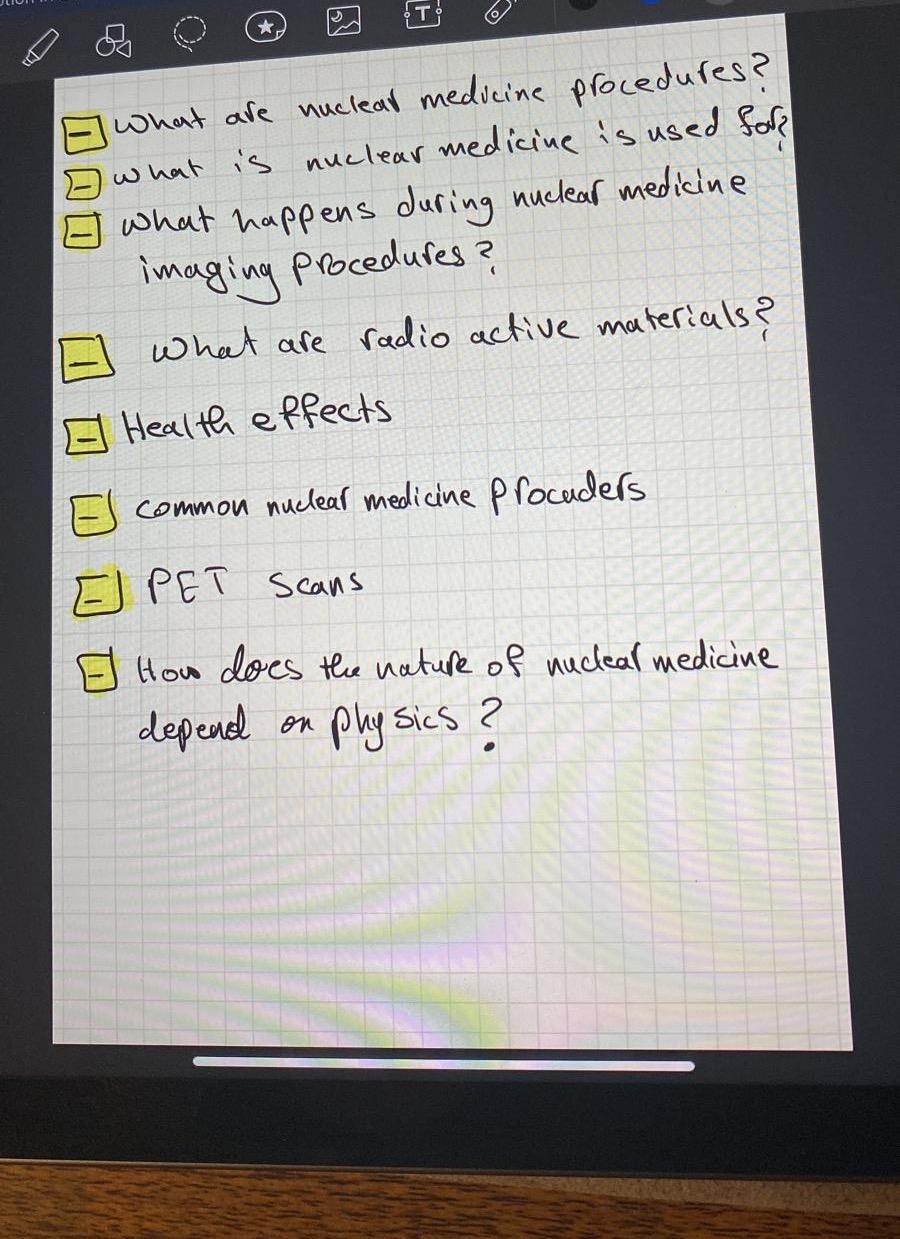 - What are nuclear medicine procedures?
- what is nuclear medicine is used for?
- what happens during nuclear medicine
imaging procedures?
- What are radio active materials?
- Health effects
- common nuclear medicine procuders
- PET scans
- How does the nature of nuclear medicine
depend on physics?